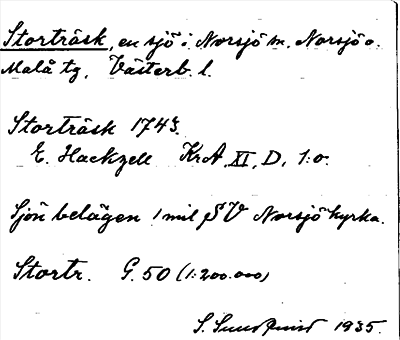 Storträsk, en sjö i Norsjö sn, Norsjö o.
Malå tg, Västerb. l.
Storträsk 1743.
E. Hackzell KrA, XI, D, 1:o.
Sjön belägen 1 mil SV Norsjö kyrka.
Stortr. G. 50 (1:200.000)
S. Sundqvist 1935.